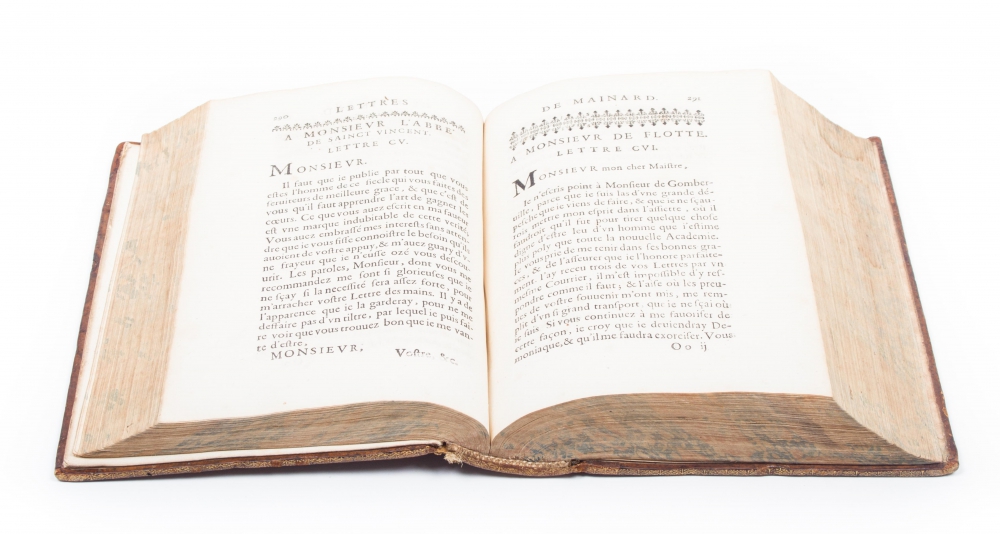 290 LETTRES
A MONSIEVR L'ABBÉ
DE SAINCT VINCENT.
LETTRE CV.
MONSIEVR.
Il faut que ie publie par tout que vous
estes l'homme de ce siecle qui vous faites des
seruiteurs de meilleure grace, & que c'est de
vous qu'il faut apprendre l'art de gagner les
cœurs. Ce que vous auez escrit en ma faueur
est vne marque indubitable de cette verité.
Vous auez embrassé mes interests sans atten-
dre que ie vous fisse connoistre le besoin qu'ils
auoient de vostre appuy, & m'auez guary d'v-
ne frayeur que ie n'eusse ozé vous descou-
urir. Les paroles, Monsieur, dont vous me
recommandez me sont si glorieuses que ie
ne sçay si la necessité sera assez forte, pour
m'arracher vostre Lettre des mains. Il y a de
l'apparence que ie la garderay, pour ne me
deffaire pas d'vn tiltre, par lequel ie puis fai-
re voir que vous trouuez bon que ie me van-
te d'estre,
MONSIEVR, Vostre, &c.
DE MAINARD. 291
A MONSIEVR DE FLOTTE.
LETTRE CVI.
MONSIEVR mon cher Maistre,
Ie n'escris point à Monsieur de Gomber-
uille, parce que ie suis las d'vne grande dé-
pesche que ie viens de faire, & que ie ne sçau-
rois mettre mon esprit dans l'assiette, où il
faudroit qu'il fust pour tirer quelque chose
digne d'estre leu d'vn homme que i'estime
plus luy que toute la nouuelle Academie.
Ie vous prie de me tenir dans ses bonnes gra-
ces, & de l'asseurer que ie l'honore parfaite-
ment. I'ay receu trois de vos Lettres par vn
mesme Courrier, il m'est impossible d'y res-
pondre comme il faut, & l'aise où les preu-
ues de vostre souuenir m'ont mis, me rem-
plit d'vn si grand transport, que ie ne sçai où
ie suis. Si vous continuez à me fauoriser de
cette façon, ie croy que ie deuiendray De-
moniaque, & qu'il me faudra exorciser. Vous
Oo ij